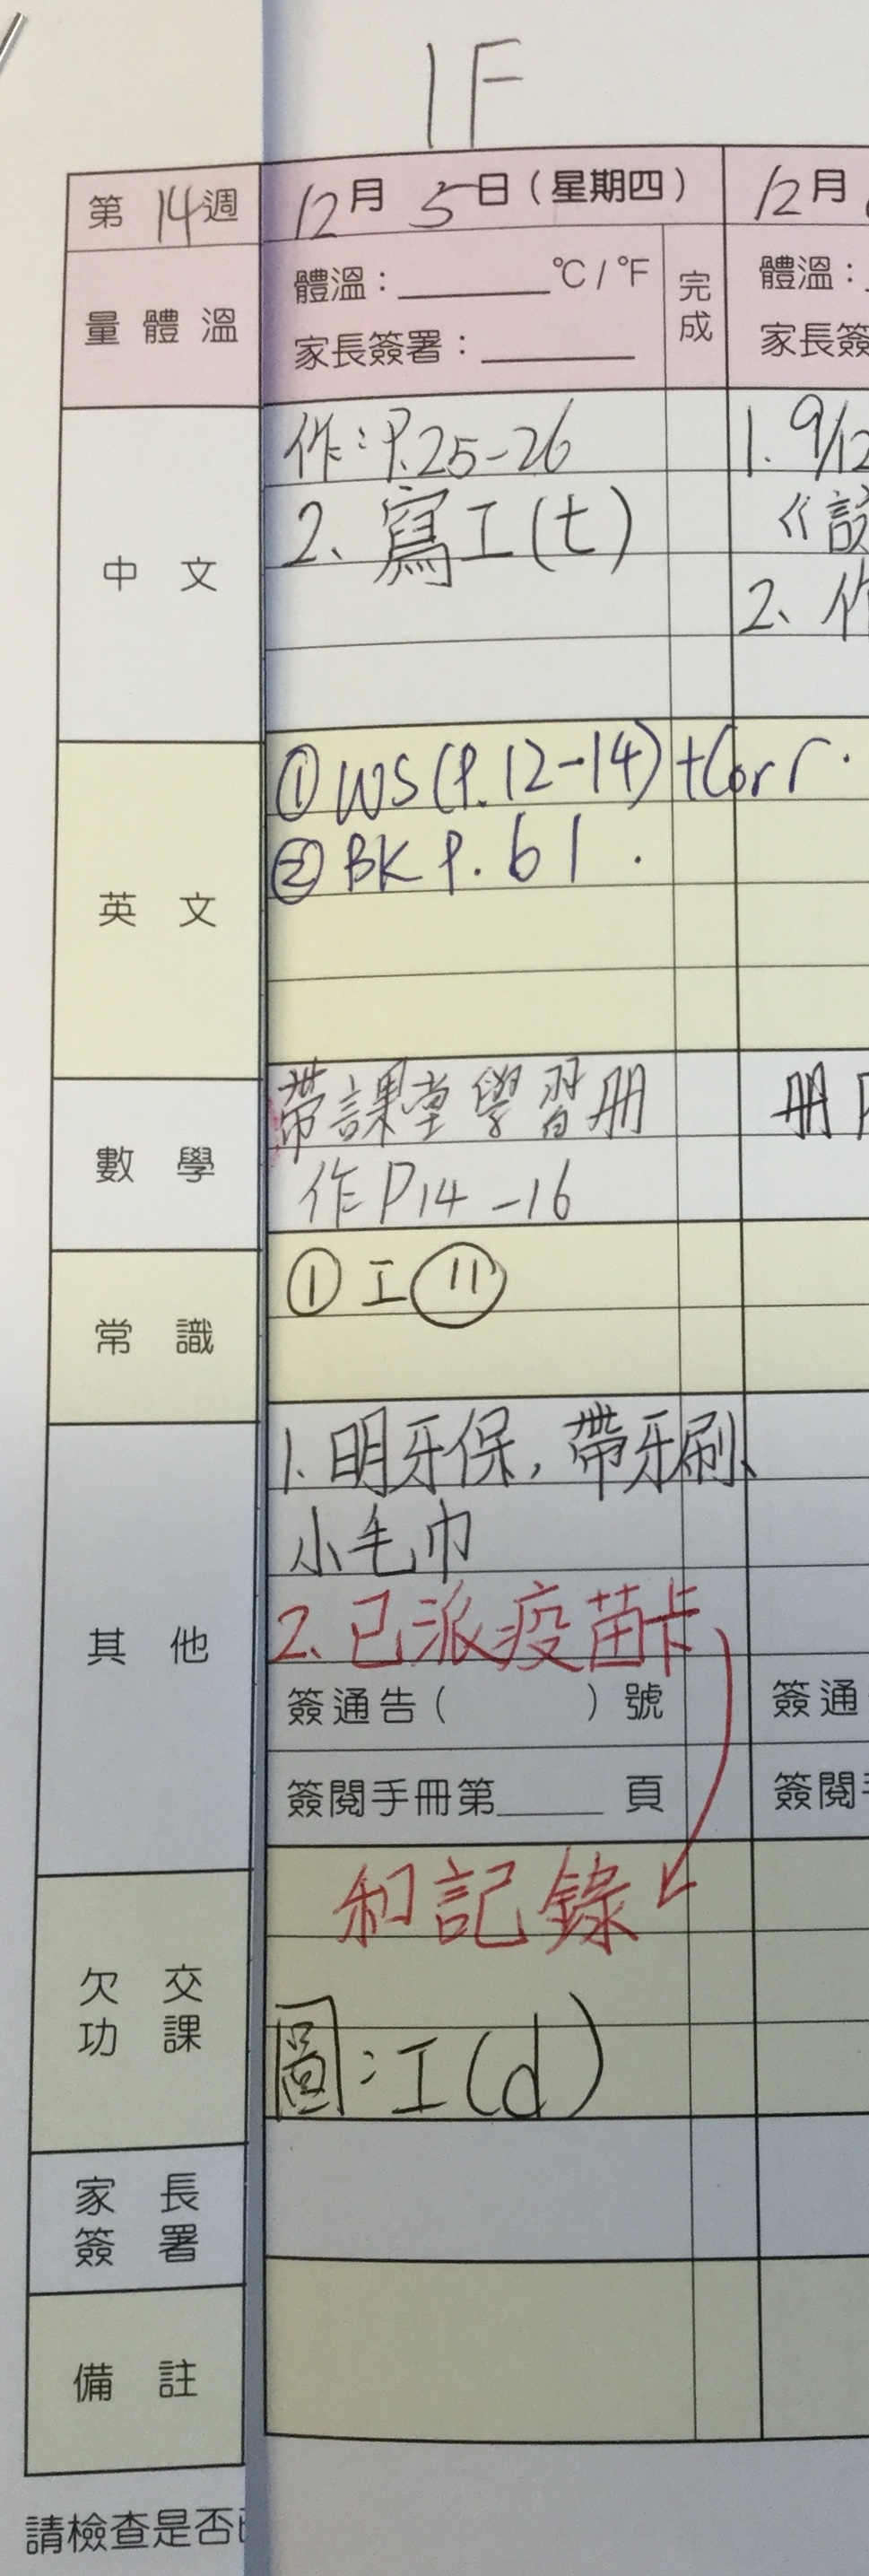 1F
第 14 週
12月 5日（星期四）
12月
量體溫
體溫：______°C / °F
家長簽署：______
完成
體溫：
家長簽
中文
作：P.25-26
2、寫工(t)
1. 9/12
《設
2、作
英文
① WS (P.12-14) + Corr.
② BK P.61.
數學
帶課堂學習冊
作P14-16
冊P
常識
① 工⑪
其他
1. 明牙保，帶牙刷、
小毛巾
2. 已派疫苗卡
簽通告（　　　）號
簽通
簽閱手冊第____頁
簽閱手
欠交功課
和記錄
圖：工(d)
家長簽署
備註
請檢查是否